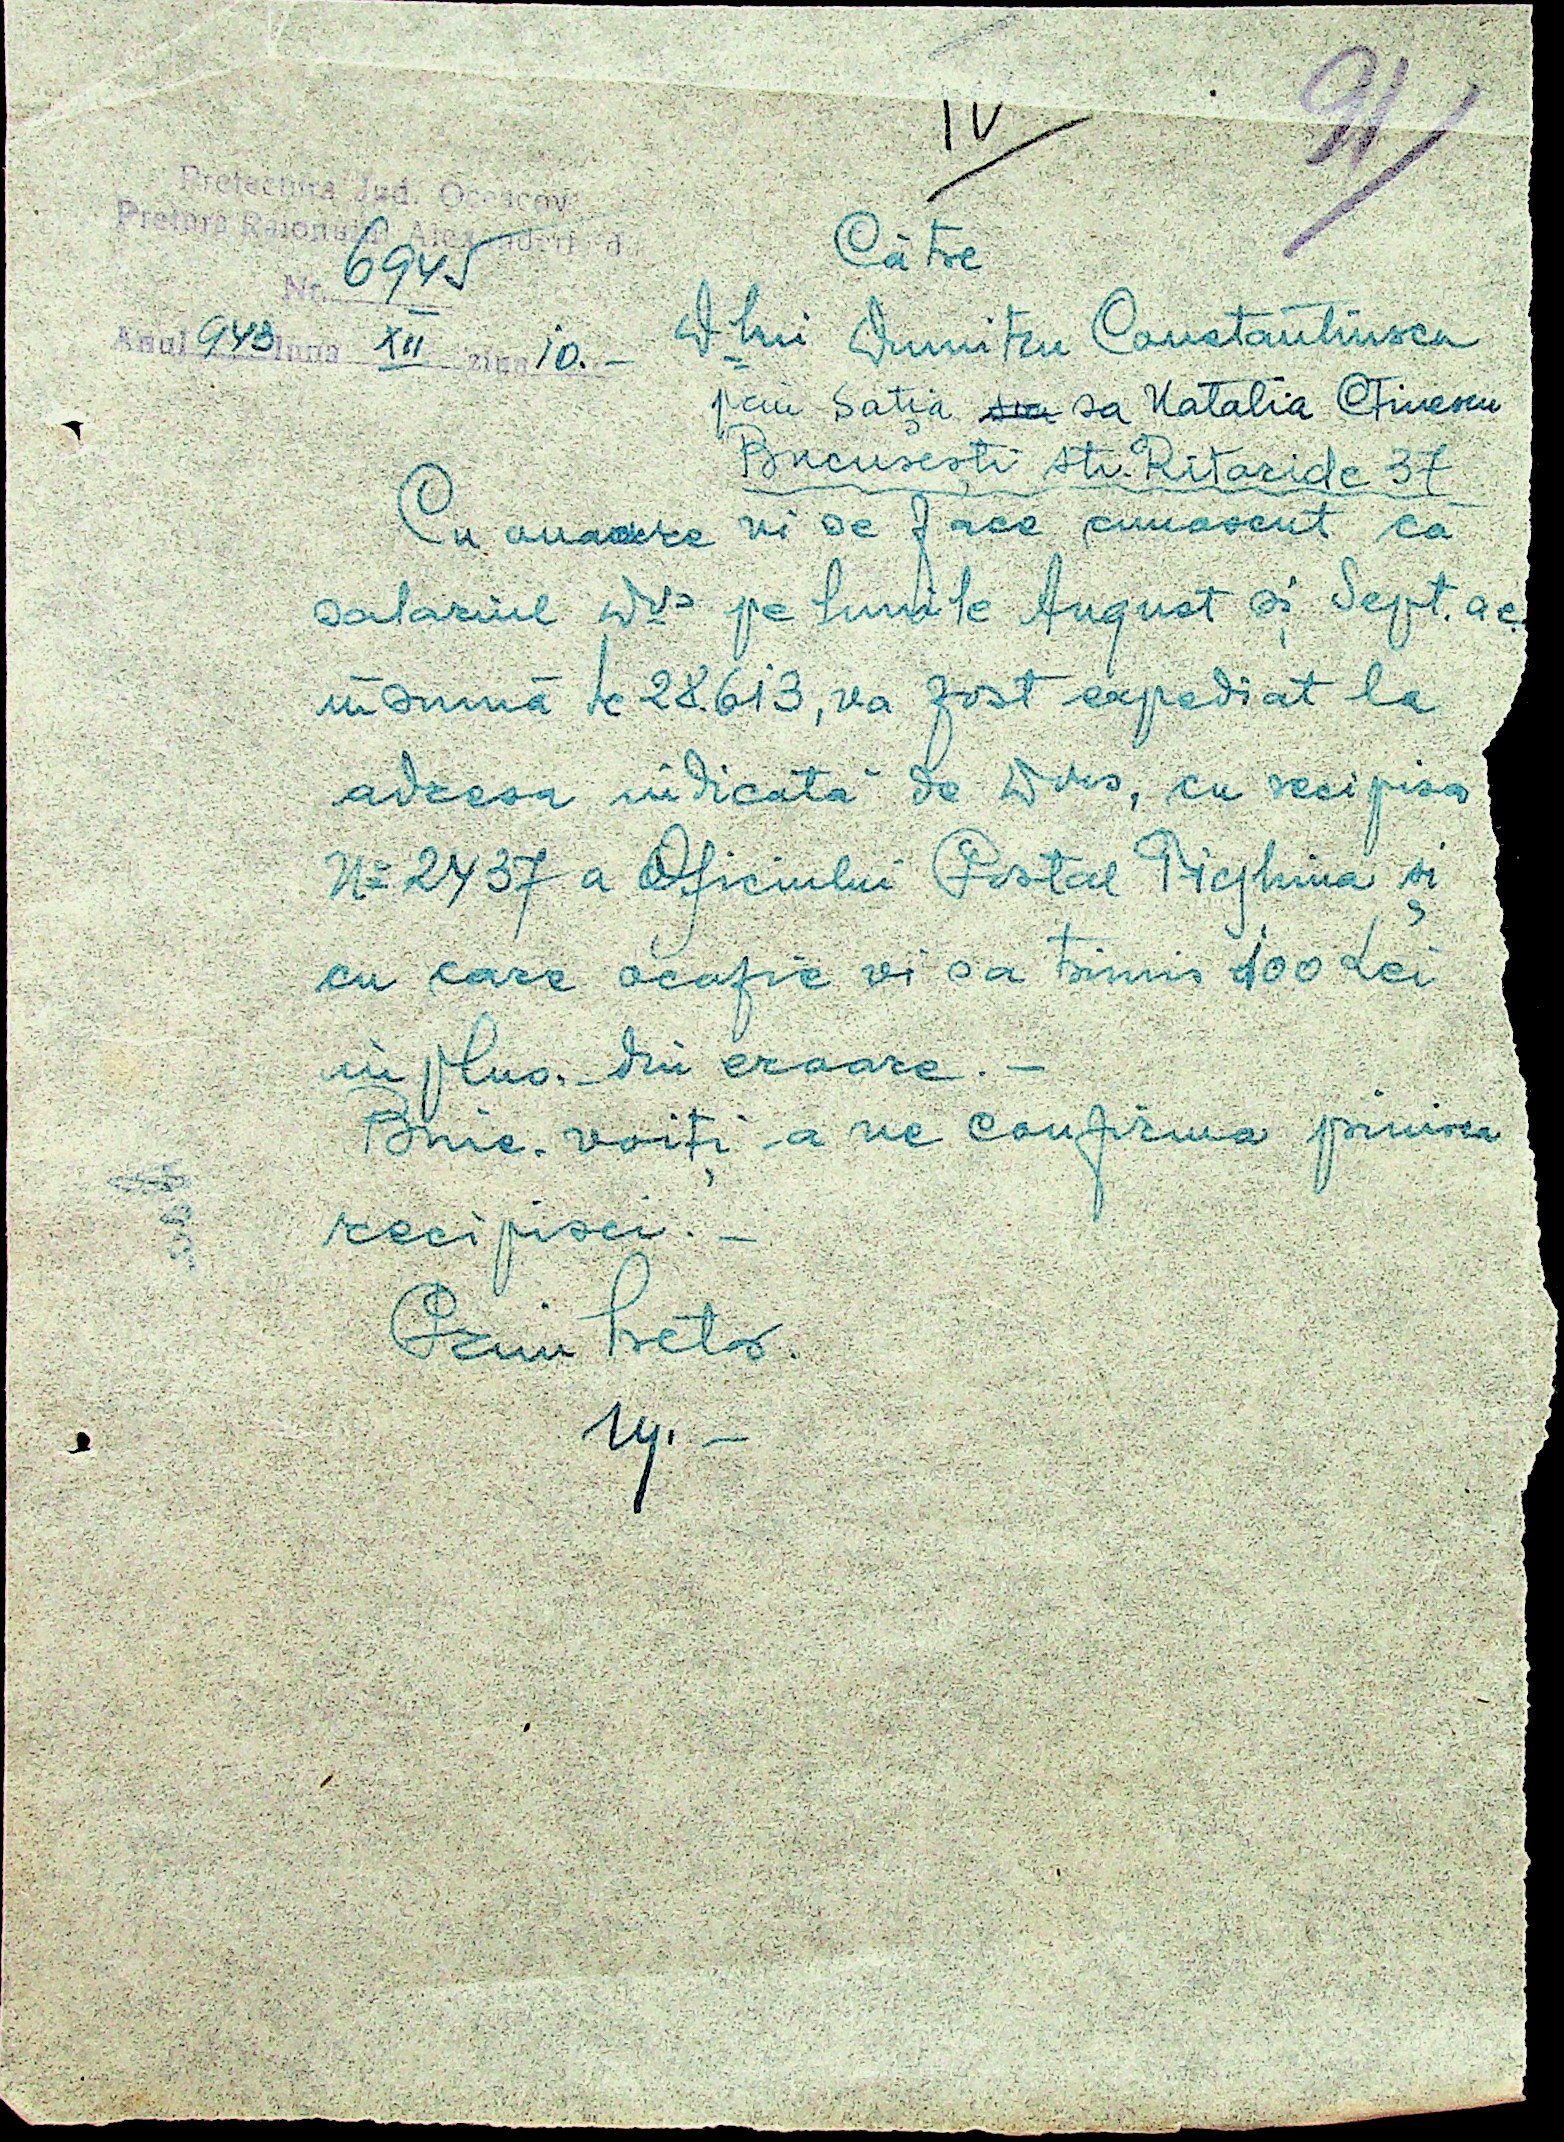 IV
91
Prefectura Jud. Oceacov
Pretura Raionului Alexanderfeld
Nr. 6945
Anul 943 luna XII ziua 10. -
Către
D-lui Dumitru Constantinescu
prin Soția sa Natalia Ctinescu
București str. Ritoride 37
Cu onoare vi se face cunoscut că
salariul Dvs pe lunile August și Sept. ac.
în sumă de 28.613, va fost expediat la
adresa indicată de Dvs, cu recipisa
No 2437 a Oficiului Postal Tighina și
cu care ocazie vi sa trimis 100 Lei
în plus. din eroare. -
Bine. voiți a ne confirma primirea
recipisei. -
Prim Pretor.